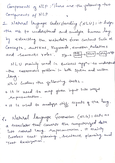 Components of NLP : There are the following two
Components of NLP
1. Natural Language Understanding (NLU) :- helps
the m/c to understand and analyse human lang
by extracting the metadata from content such as
Concepts, entities, Keywords, emotion, relations
and Semantic roles.
NLU mainly used in Business appln to understand
the customer's problem in both spoken and written
lang.
NLU involves the following tasks -
It is used to map the given i/p into useful
representation.
It is used to analyze diff. aspects of the lang.
2. Natural Language Generation (NLG) :-
translator that converts the computerized data
into natural lang representation. It mainly
involves text planning, sentence planning and
text realization.